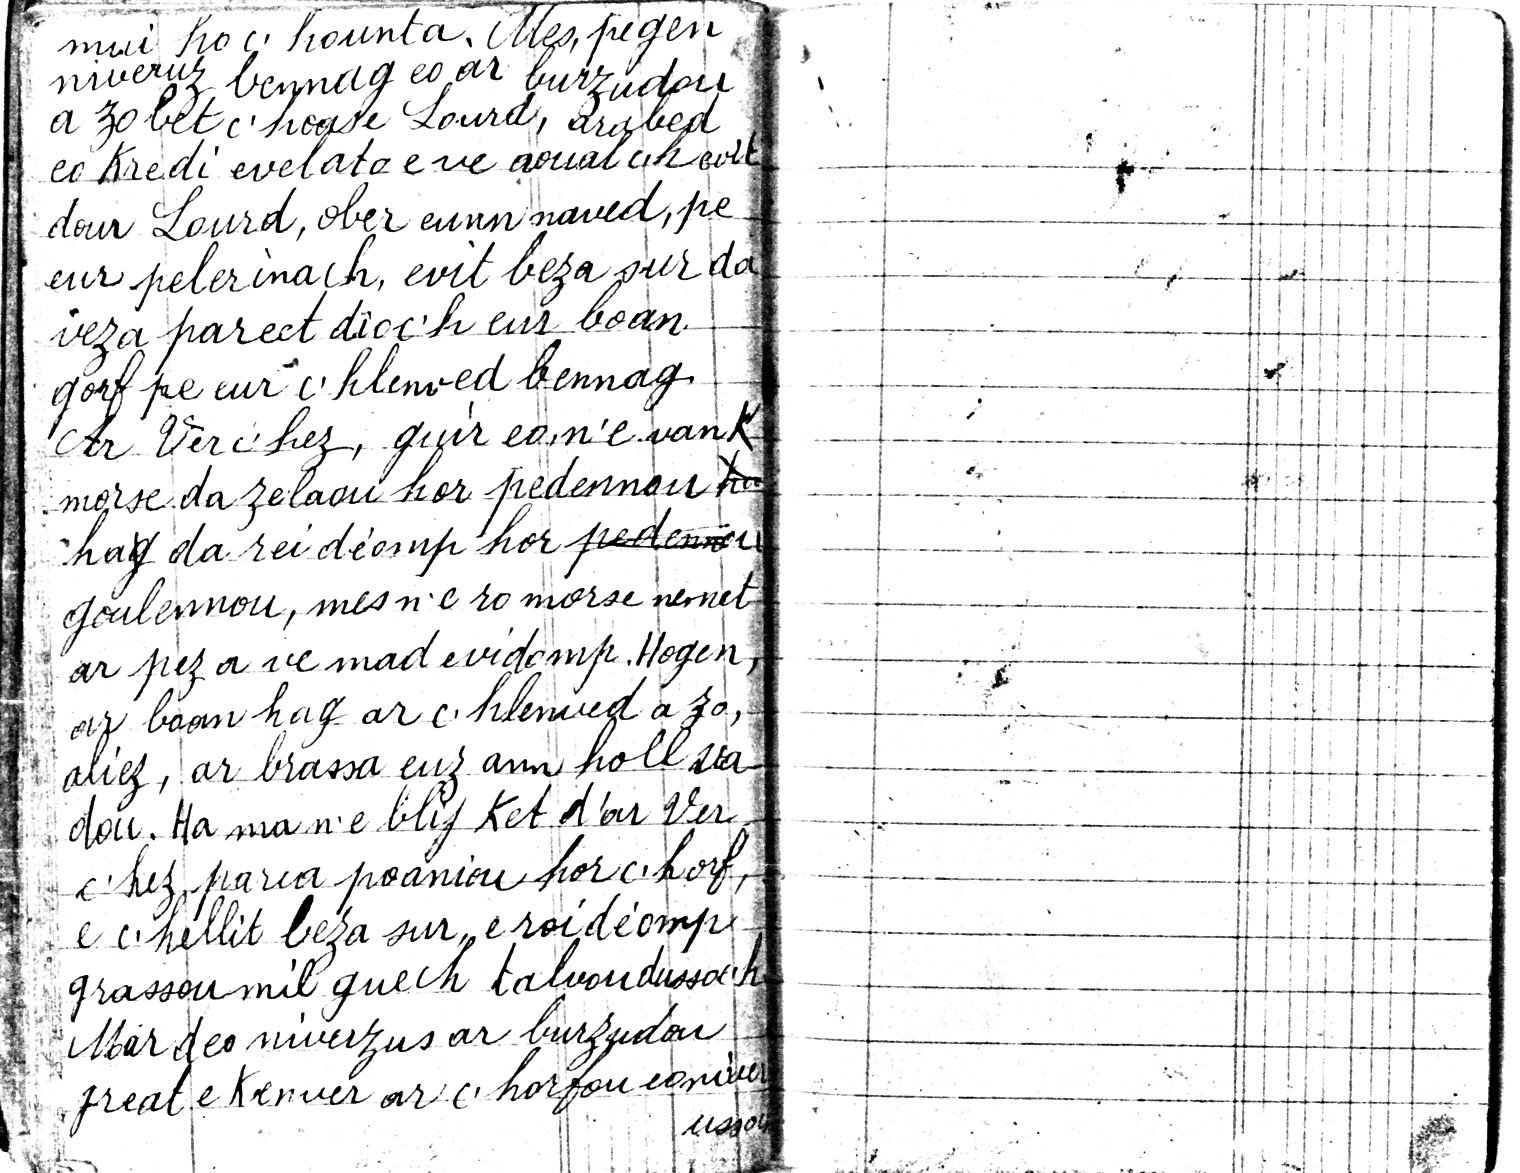 mui ho c'hounta. Mes, pegen
niveruz bennag eo ar burzudou
a zo bet c'hoase Lourd, arabed
eo Kredi evelato e ve aoualc'h evit
dour Lourd, ober eunn naved, pe
eur pelerinach, evit beza sur da
veza pareet dioc'h eur boan
gorf pe eur c'hlenved bennag.
Ar Verc'hez, guir eo, n'e vank
morse da zelaou hor pedennou ha
hag da rei déomp hor pedennou
goulennou, mes n'e ro morse nemet
ar pez a ve mad evidomp. Hogen,
ar boan hag ar c'hlenved a zo,
aliez, ar brassa euz ann holl va
dou. Ha ma n'e blij Ket d'ar Ver
c'hez parea poaniou hor c'horf,
e c'hellit beza sur, e roi déomp
grassou mil guech talvoudussoc'h
Mar deo niverzus ar burzudou
great e Kenver ar c'horfou eo niver
ussoc'h